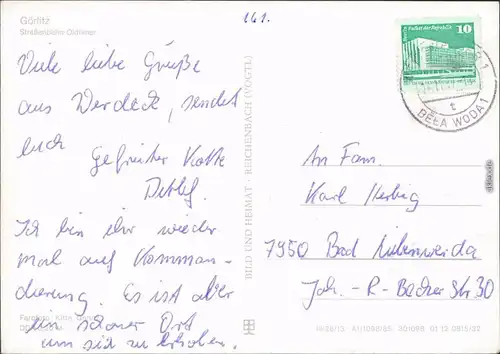 Görlitz
Straßenbahn-Oldtimer
161.
Viele liebe Grüße
aus Werdeck, sendet
euch
Gefreiter
Detlef.
Ich bin ihr wieder
mal auf Komman-
dierung. Es ist aber
ein schöner Ort
um sich zu erholen.
BILD UND HEIMAT · REICHENBACH (VOGTL)
Palast der Republik
10
DDR
t
BEŁA WODA 1
An Fam.
Karl Herbig
7950 Bad Liebenwerda
Joh. - R - Becher Str 30